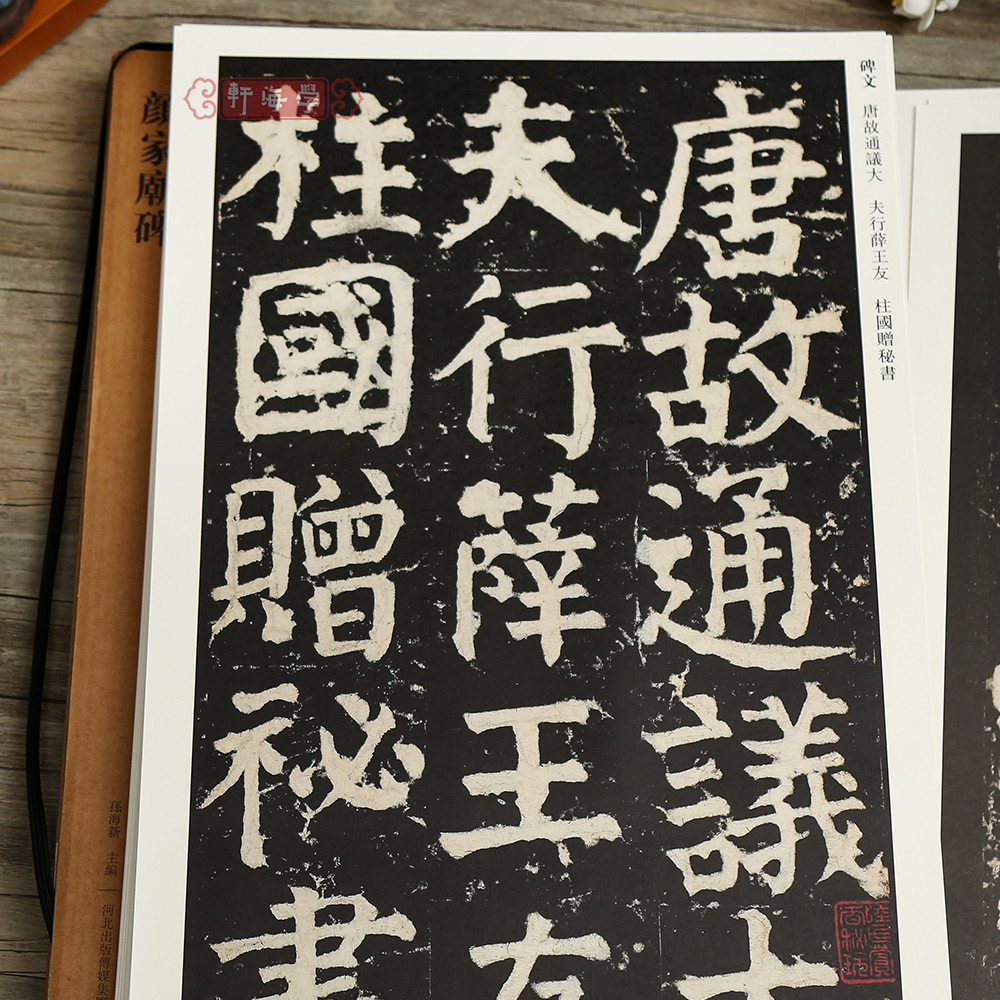 學海軒
碑文 唐故通議大 夫行薛王友 柱國贈秘書
唐故通議大
夫行薛王友
柱國贈祕書
顏家廟碑
孫海新 主編
河北出版傳媒集